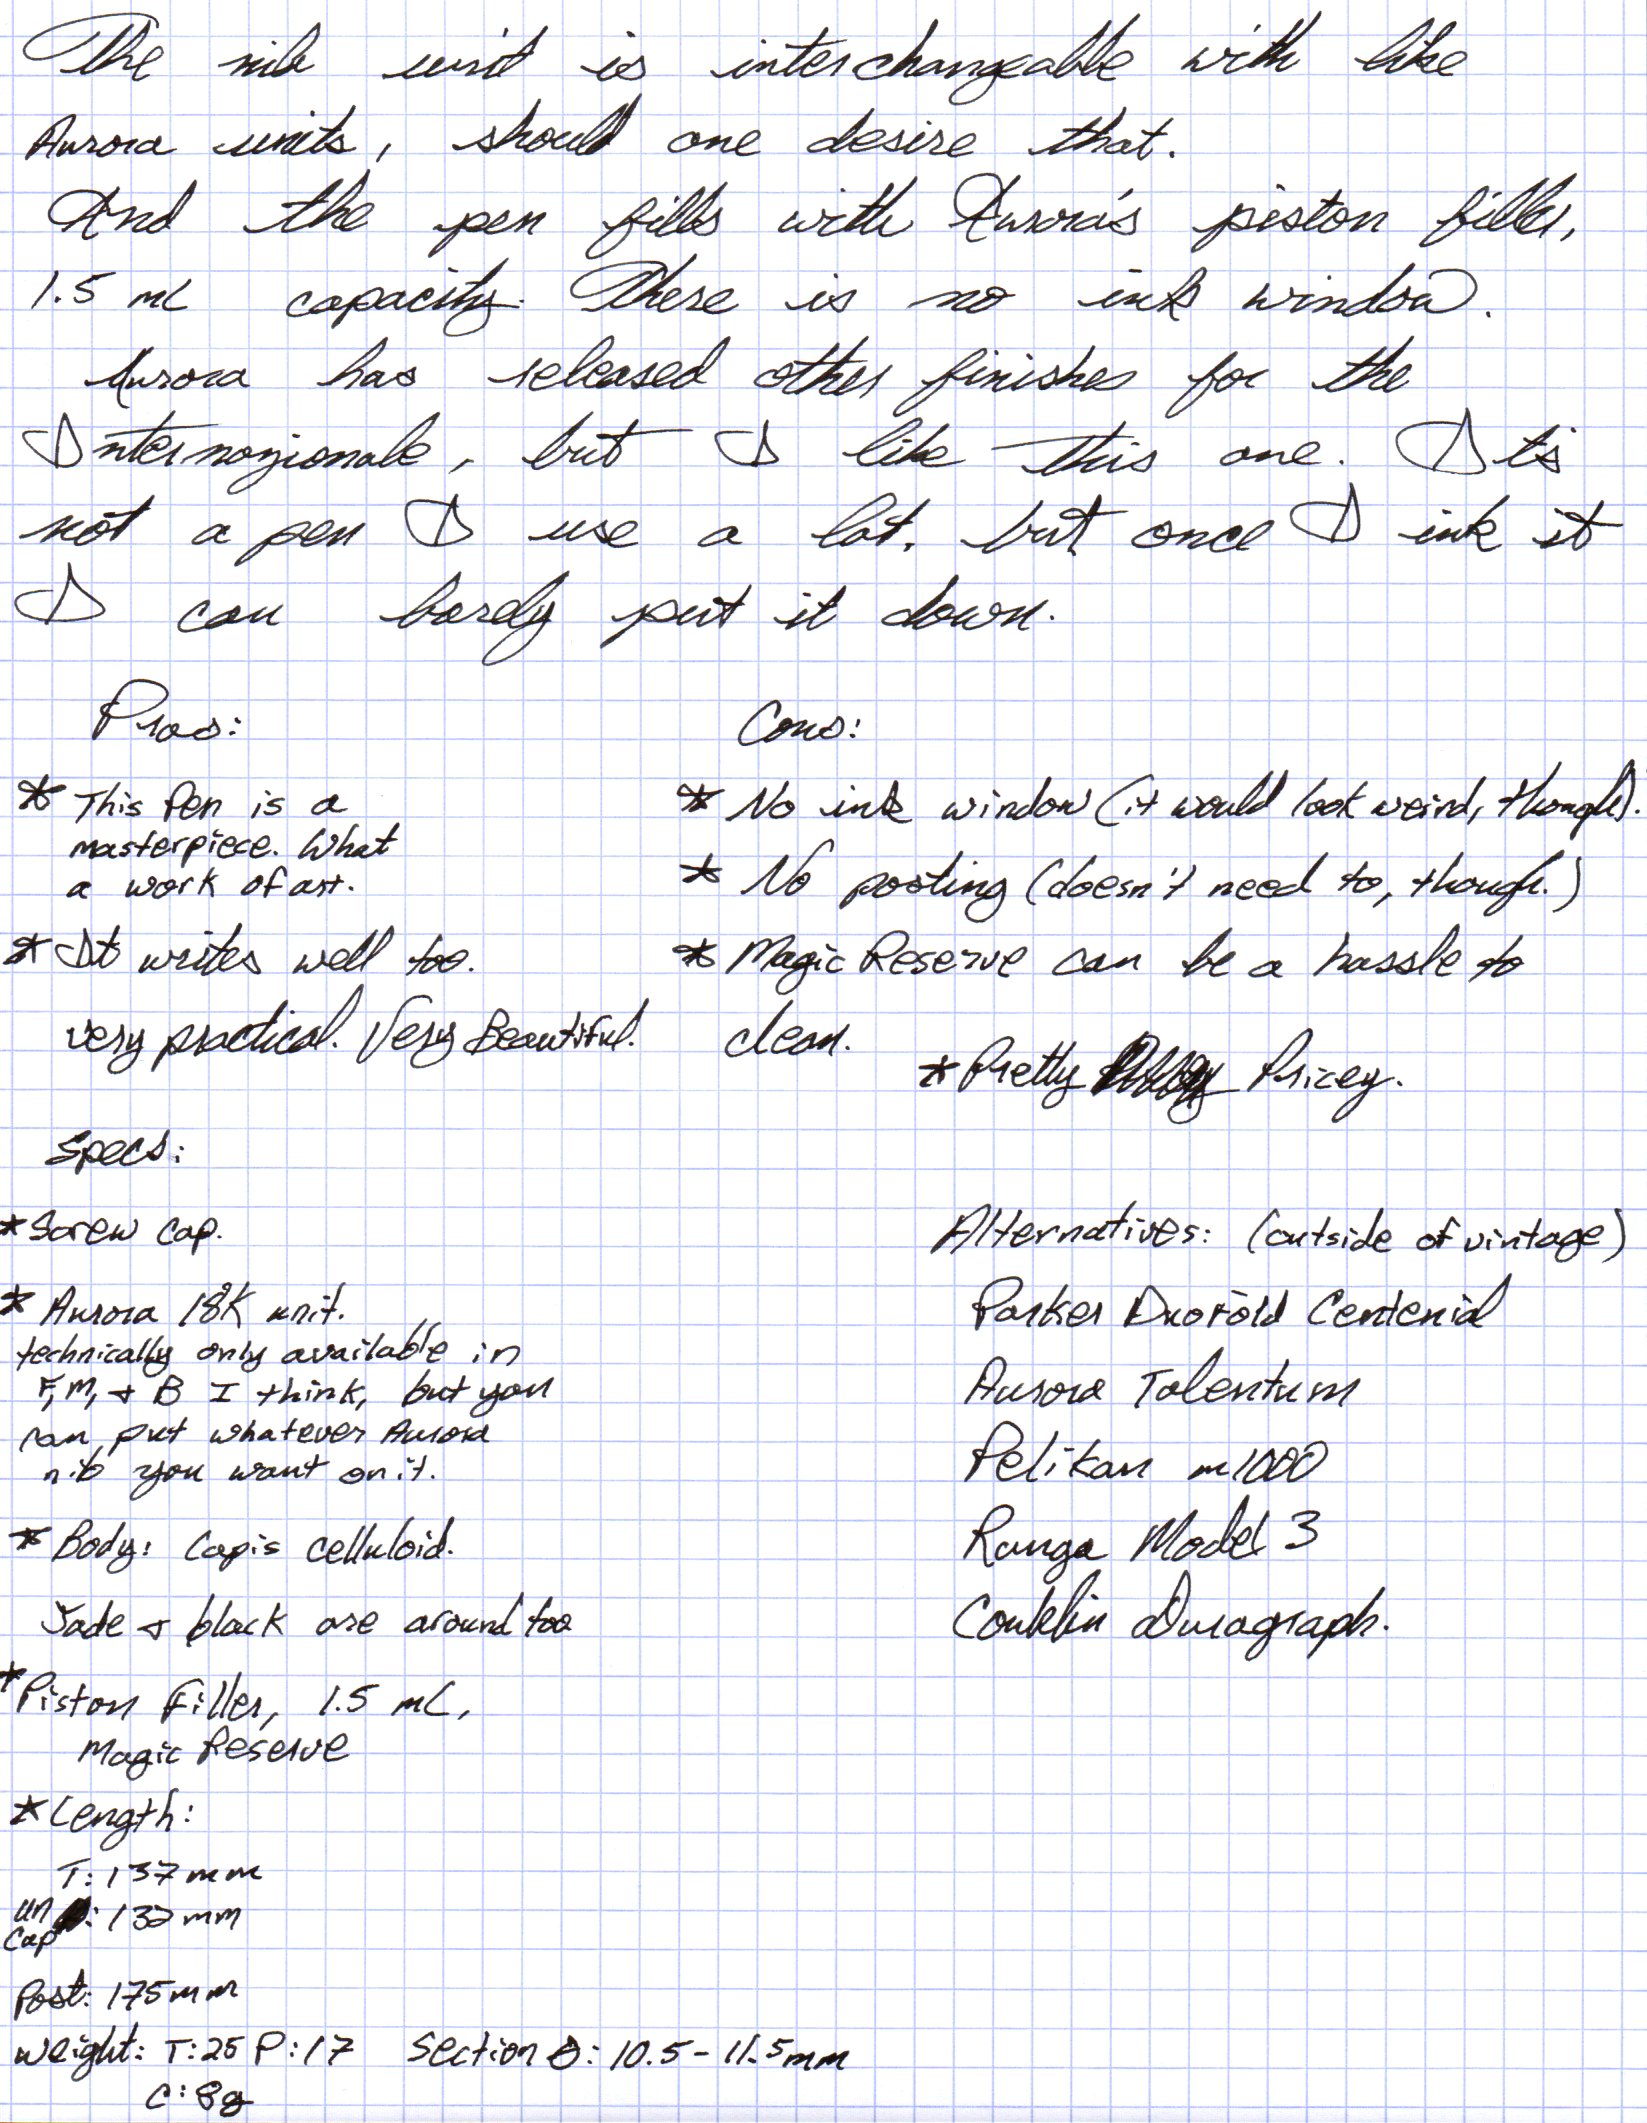 The nib unit is interchangeable with like
Aurora units, should one desire that.
And the pen fills with Aurora's piston filler,
1.5 mL capacity. There is no ink window.
Aurora has released other finishes for the
Internazionale, but I like this one. It's
not a pen I use a lot, but once I ink it
I can barely put it down.
Pros:
* This Pen is a
masterpiece. What
a work of art.
* It writes well too.
very practical. Very Beautiful.
Cons:
* No ink window (it would look weird, though).
* No posting (doesn't need to, though.)
* Magic Reserve can be a hassle to
clean.
* Pretty Pricey.
Specs:
* Screw Cap.
* Aurora 18K unit.
technically only available in
F, M, + B I think, but you
can put whatever Aurora
nib you want on it.
* Body: Capis celluloid.
Jade + black are around too
* Piston Filler, 1.5 mL,
Magic Reserve
* Length:
T: 137mm
un
cap: 132mm
Post: 175mm
weight: T:25 P:17 Section Ø: 10.5-11.5mm
C:8g
Alternatives: (outside of vintage)
Parker Duofold Centenial
Aurora Talentum
Pelikan m1000
Ranga Model 3
Conklin Duragraph.